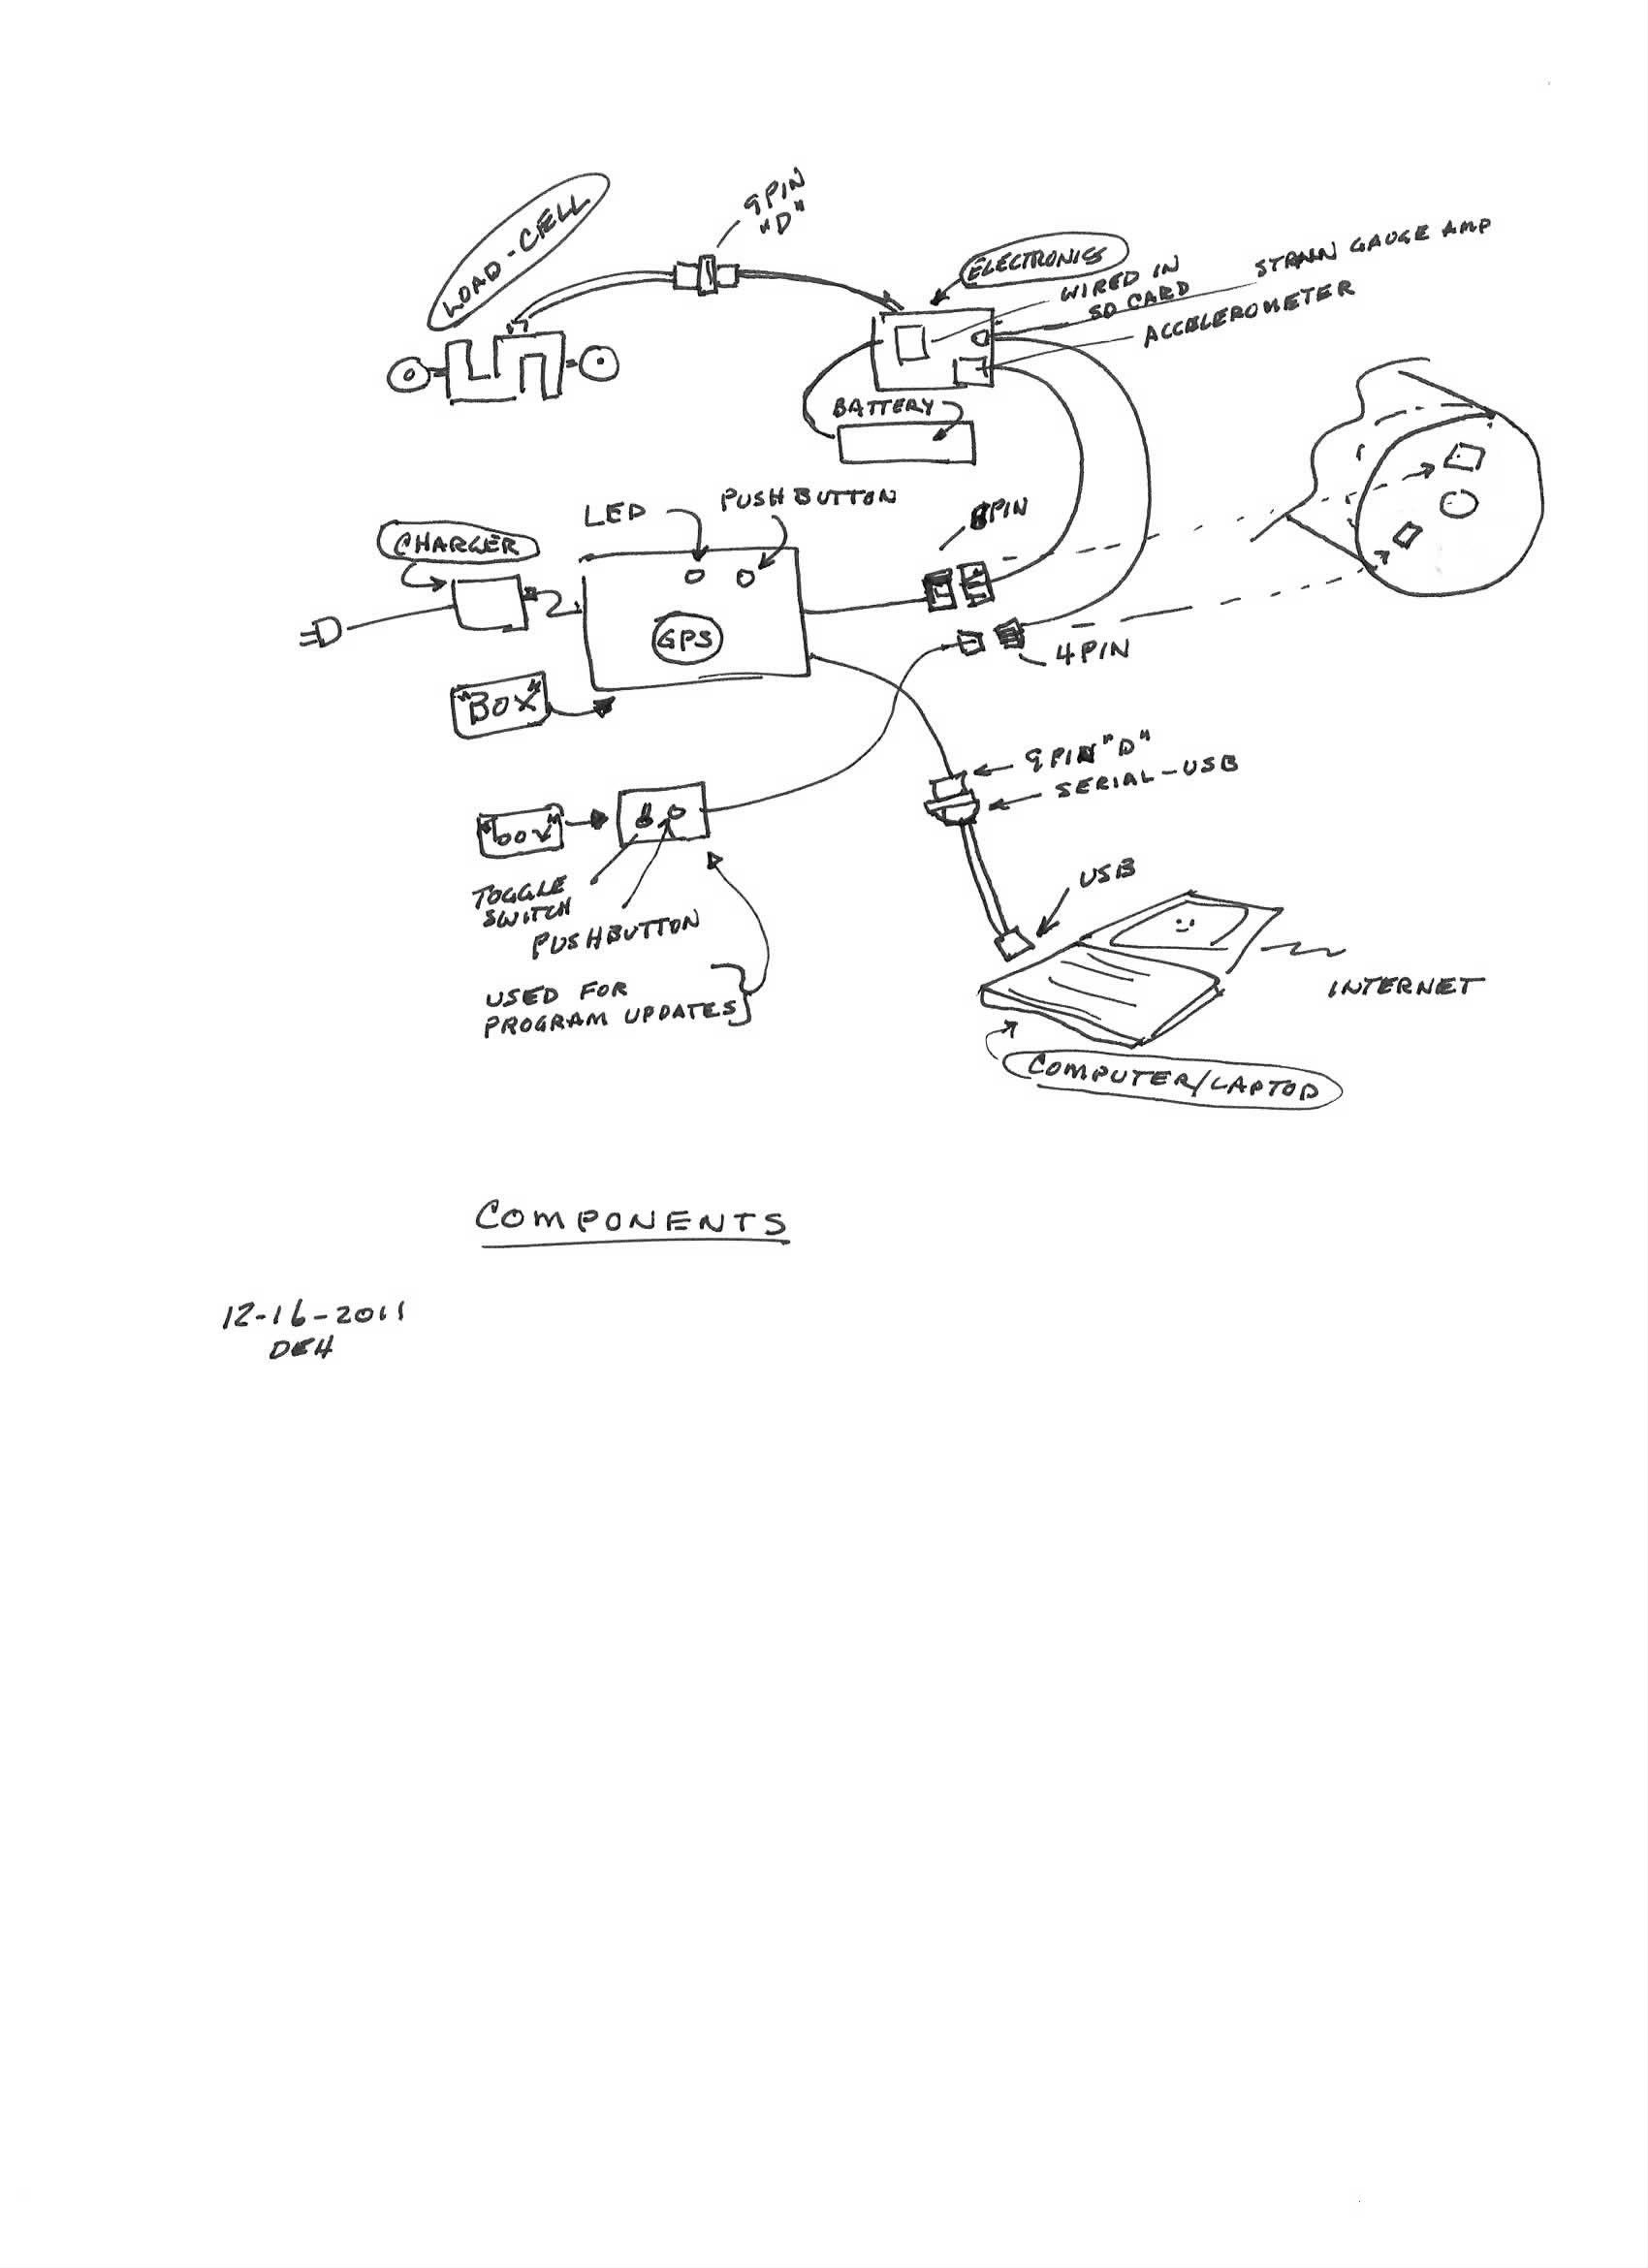 LOAD-CELL
9PIN
"D"
ELECTRONICS
WIRED IN
SD CARD
STRAIN GAUGE AMP
ACCELEROMETER
BATTERY
LED
PUSHBUTTON
8PIN
CHARGER
GPS
4PIN
"BOX"
9PIN "D"
SERIAL-USB
"box"
TOGGLE
SWITCH
PUSHBUTTON
USB
USED FOR
PROGRAM UPDATES
INTERNET
COMPUTER/LAPTOP
COMPONENTS
12-16-2011
DEH